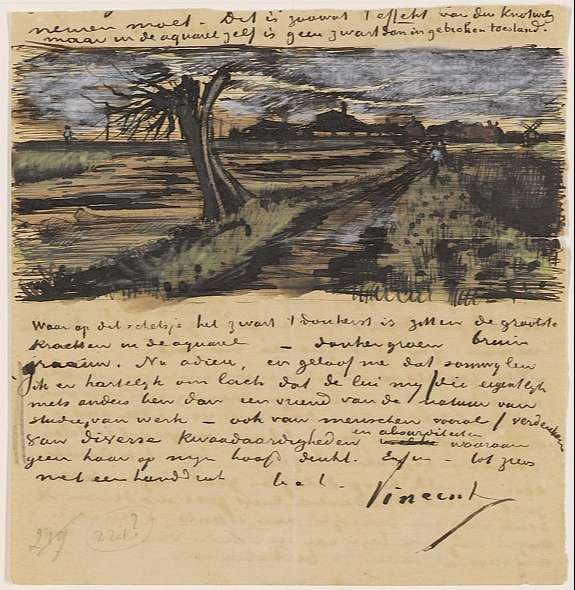 nemen moet. – Dit is zoowat 't effekt van den knotwilg
maar in de aquarel zelf is geen zwart dan in gebroken toestand.
Waar op dit schetsje het zwart 't donkerst is zitten de grootste
krachten in de aquarel – donkergroen bruin
graauw. Nu adieu, en geloof me dat somwylen
ik er hartelyk om lach dat de lui my /die eigentlyk
niets anders ben dan een vriend van de natuur van
studie, van werk – ook van menschen vooral/ verdenken
van diverse kwaadaardigheden en absurditeiten waaraan
geen haar op myn hoofd denkt. Enfin – tot ziens
met een handdruk t. à t.
Vincent
229 228?